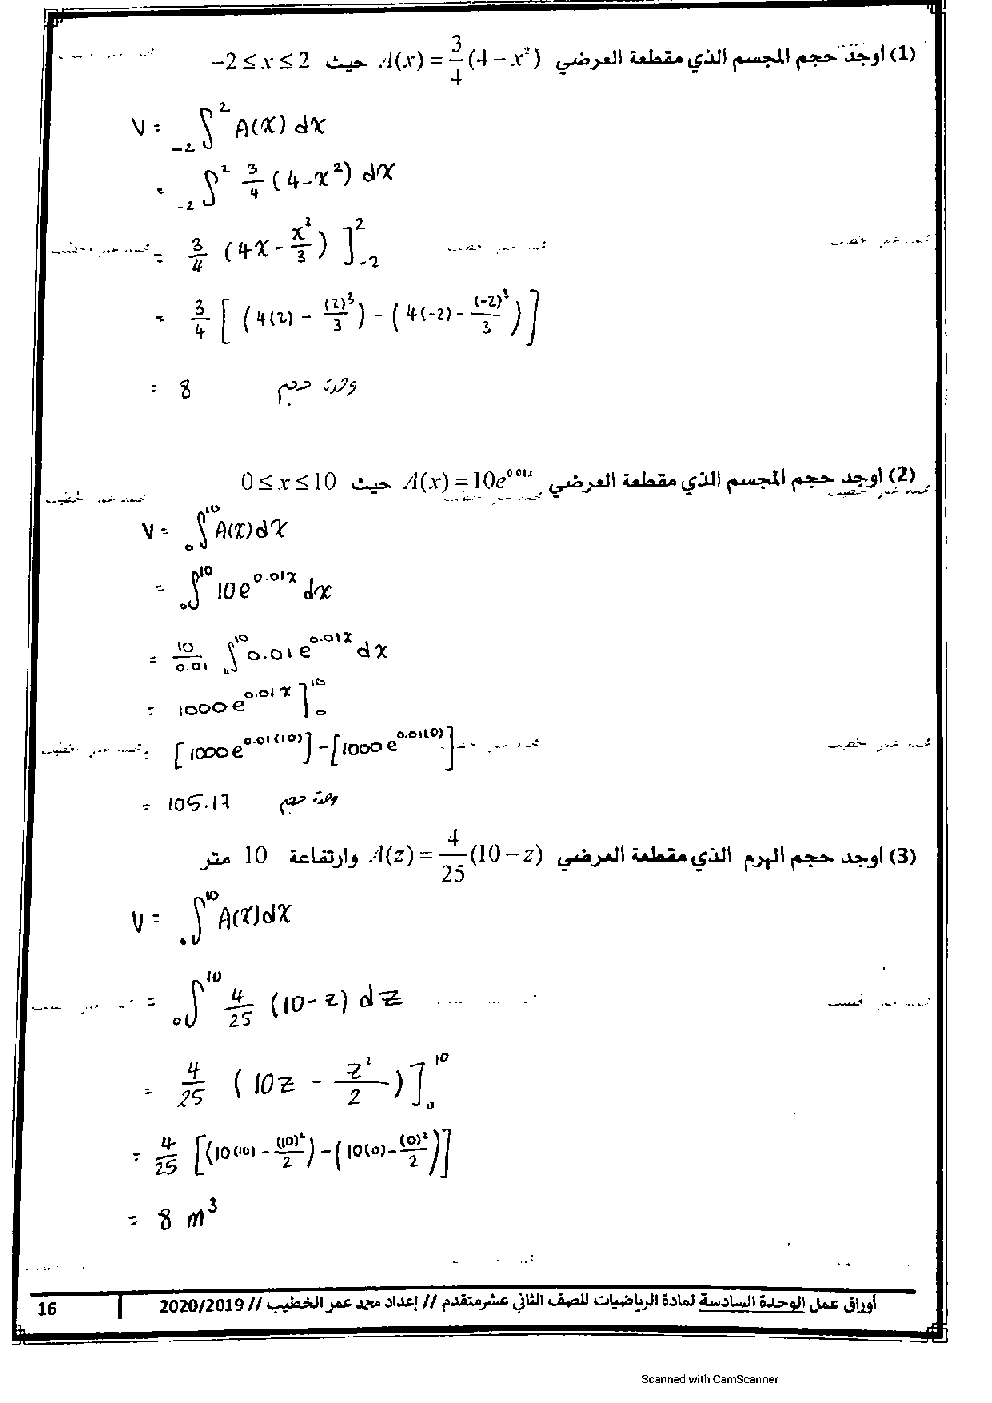 (1) أوجد حجم المجسم الذي مقطعة العرضي A(x) = 3/4 (4 − x²) حيث −2 ≤ x ≤ 2
V = ₋₂∫² A(x) dx
= ₋₂∫² 3/4 (4 − x²) dx
= 3/4 (4x − x³/3) ]²₋₂
= 3/4 [ (4(2) − (2)³/3) − (4(−2) − (−2)³/3) ]
= 8 وحدة حجم
(2) أوجد حجم المجسم الذي مقطعة العرضي A(x) = 10e^0.01x حيث 0 ≤ x ≤ 10
V = ₀∫¹⁰ A(x) dx
= ₀∫¹⁰ 10e^0.01x dx
= 10/0.01 ₀∫¹⁰ 0.01 e^0.01x dx
= 1000 e^0.01x ]¹⁰₀
= [1000 e^0.01(10)] − [1000 e^0.01(0)]
= 105.17 وحدة حجم
(3) أوجد حجم الهرم الذي مقطعة العرضي A(z) = 4/25 (10 − z) وارتفاعة 10 متر
V = ₀∫¹⁰ A(x) dx
= ₀∫¹⁰ 4/25 (10 − z) dz
= 4/25 (10z − z²/2) ]¹⁰₀
= 4/25 [(10(10) − (10)²/2) − (10(0) − (0)²/2)]
= 8 m³
أوراق عمل الوحدة السادسة لمادة الرياضيات للصف الثاني عشر متقدم // إعداد محمد عمر الخطيب // 2020/2019 16
Scanned with CamScanner